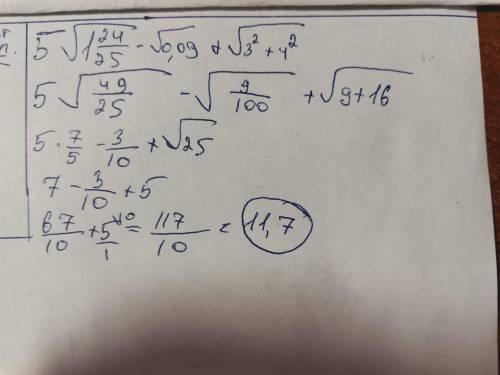 5√(1 24/25) - √0,09 + √(3² + 4²)
5√(49/25) - √(9/100) + √(9+16)
5 · 7/5 - 3/10 + √25
7 - 3/10 + 5
67/10 + 5/1 \10 = 117/10 = 11,7